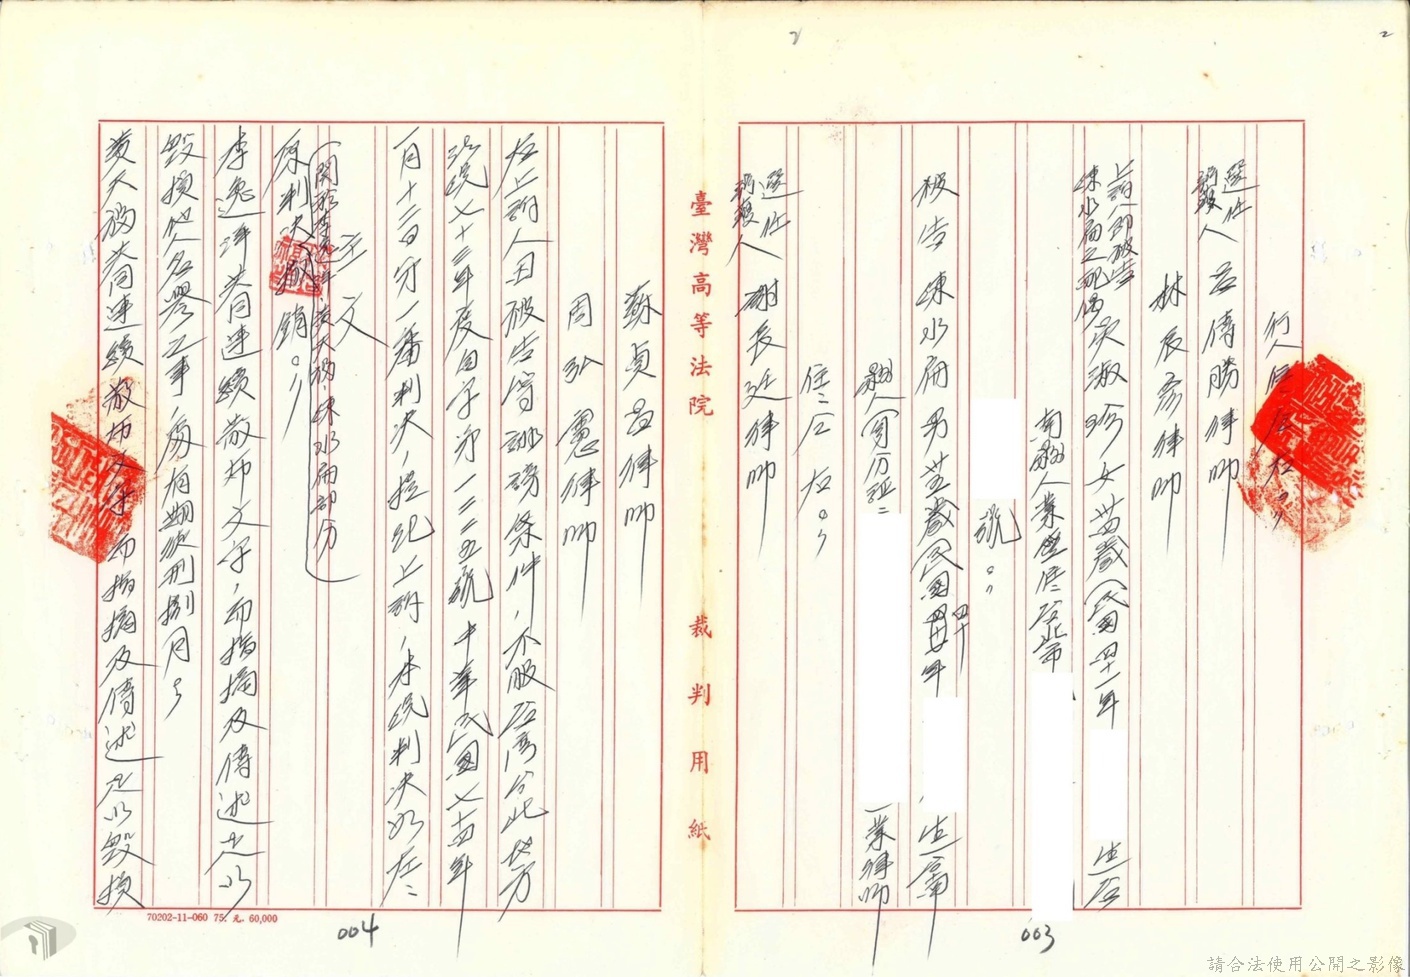 2
2
行人住居在。
選任辯護人 呂傳勝律師
林辰彥律師
上訴人即被告陳水扁之配偶 吳淑珍 女 歲(民國四十一年 生)台
南縣人業 住台北市
號。
被告 陳水扁 男 歲(民國四十年 生)台南
縣人(身分證: 業律師
住台 在。
選任辯護人 謝長廷律師
003
臺灣高等法院
裁判用紙
蘇貞昌律師
周弘憲律師
右上訴人因被告等誹謗案件,不服台灣台北地方
法院七十三年度自字第一二二五號中華民國七十四年
一月十二日第一審判決,提起上訴,本院判決如左:
主文
原判決(關於李逸洋、黃天福、陳水扁部分)撤銷。
李逸洋共同連續散布文字,而指摘及傳述足以
毀損他人名譽之事,處有期徒刑捌月。
黃天福共同連續散布文字,而指摘及傳述足以毀損
70202-11-060 75. 元. 60,000
004
請合法使用公開之影像